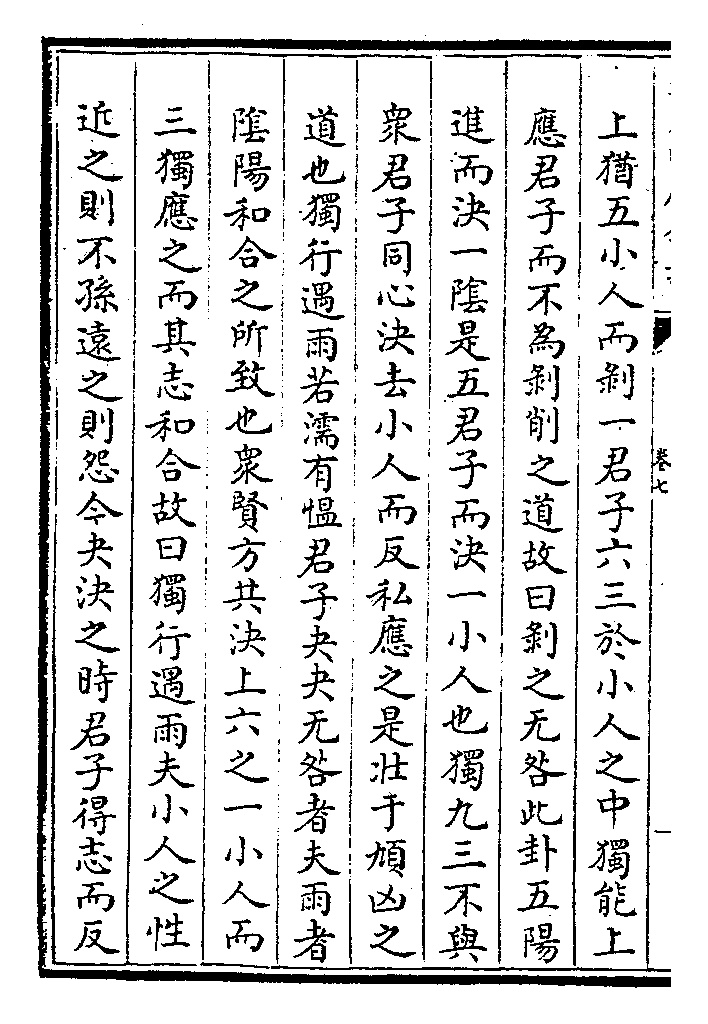 上猶五小人而剝一君子六三於小人之中獨能上
應君子而不為剝削之道故曰剝之无咎此卦五陽
進而決一陰是五君子而決一小人也獨九三不與
衆君子同心決去小人而反私應之是壯于頄凶之
道也獨行遇雨若濡有愠君子夬夬无咎者夫雨者
陰陽和合之所致也衆賢方共決上六之一小人而
三獨應之而其志和合故曰獨行遇雨夫小人之性
近之則不孫遠之則怨今夬決之時君子得志而反
卷七